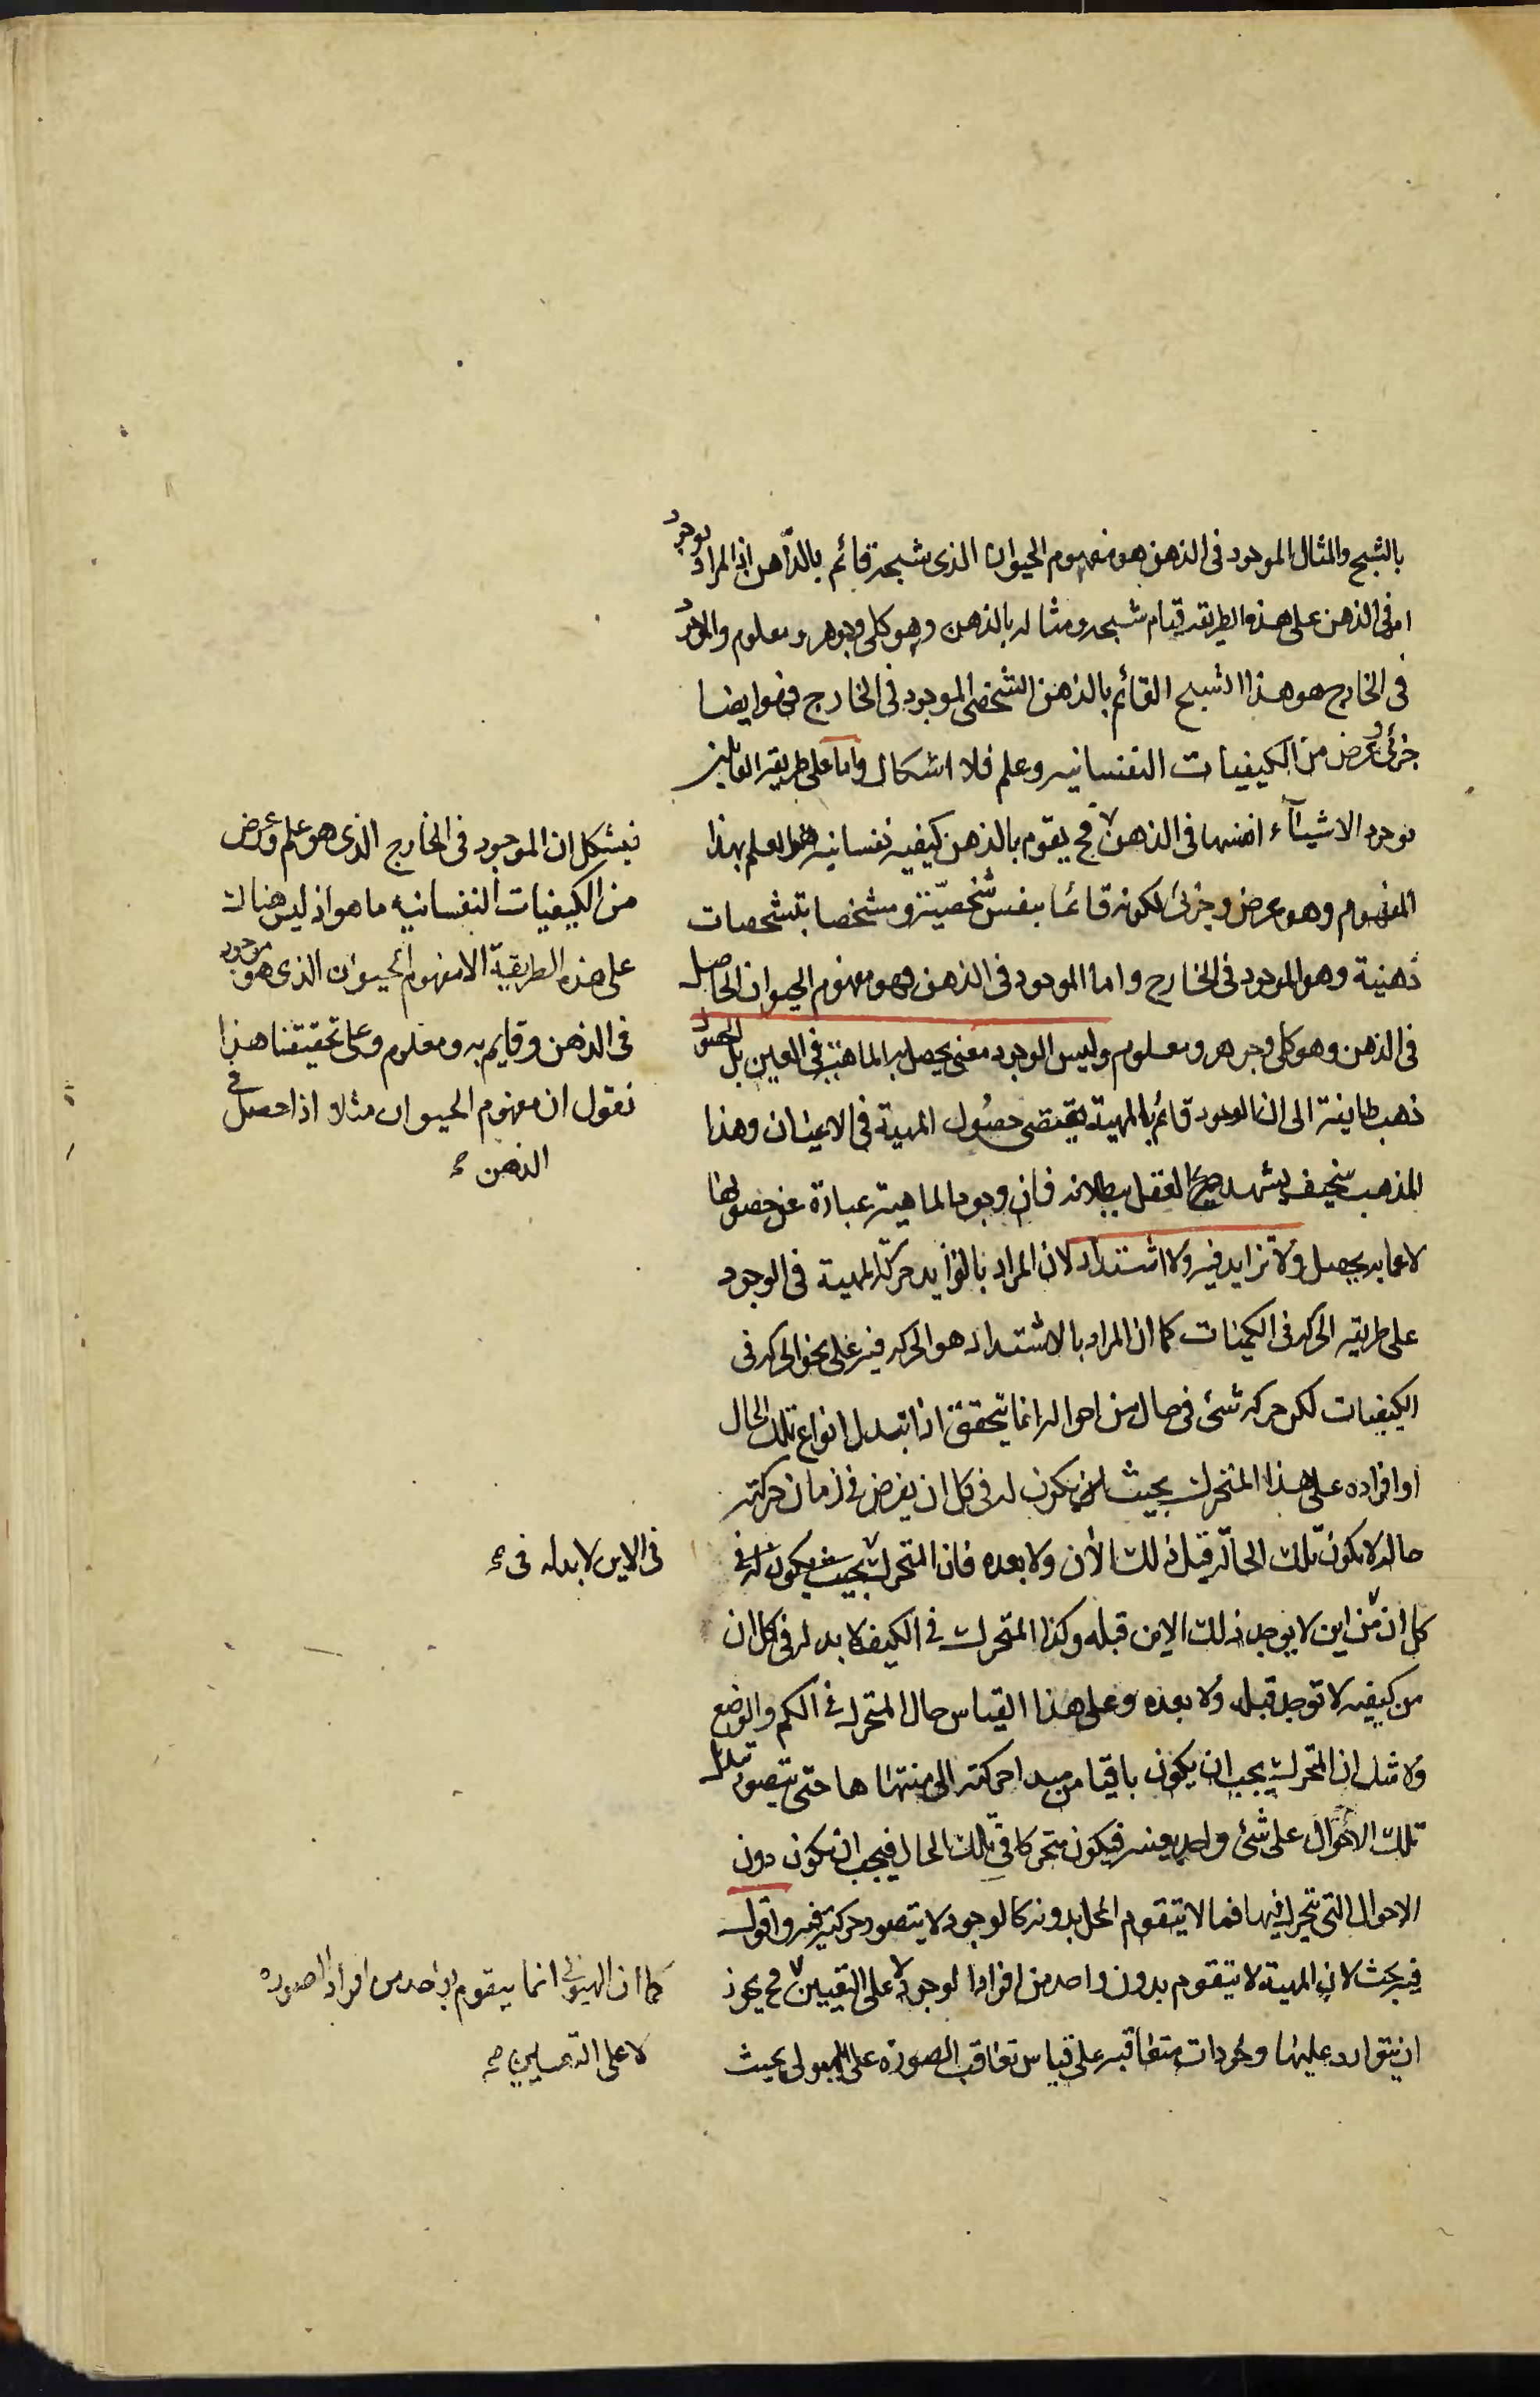 بالشبح والمثال الموجود فى الذهن هو مفهوم الحيوان الذى شبحه قائم بالذهن اذ المراد بوجود
امر فى الذهن على هذه الطريقه قيام شبحه ومثاله بالذهن وهو كلى وجوهر ومعلوم والموجود
فى الخارج هو هذا الشبح القائم بالذهن الشخصى الموجود فى الخارج فهو ايضا
جزئى وعرض من الكيفيات النفسانيه وعلم فلا اشكال واما على طريقه القائلين
بوجود الاشيآء انفسها فى الذهن فح يقوم بالذهن كيفيه نفسانيه هو العلم بهذا
المفهوم وهو عرض وجزئى لكونه قائما بنفس شخصيّته ومشخصا بتشخصات
ذهنية وهو الموجود فى الخارج واما الموجود فى الذهن فهو مفهوم الحيوان الحاصل
فى الذهن وهو كلى وجوهر ومعلوم وليس الوجود معنى يحصل به الماهية فى العين بل الحصول
ذهب طايفة الى ان الوجود قائم بالمهية يقتضى حصول المهية فى الاعيان وهذا
المذهب سخيف يشهد صريح العقل ببطلانه فان وجود الماهية عبارة عن حصولها
لا عما به يحصل ولا تزايد فيه ولا اشتداد لان المراد بالتزايد حركة المهية فى الوجود
على طريقه الحركه فى الكميات كما ان المراد بالاشتداد هو الحركه فيه على نحو الحركه فى
الكيفيات لكن حركه شئ فى حال من احواله انما يتحقق اذا تبدل انواع تلك الحال
او افراده على هذا المتحرك بحيث يكون له فى كل ان يفرض فى زمان حركته
حاله لا يكون تلك الحالة قبل ذلك الأن ولا بعده فان المتحرك بحيث يكون له فى
كل ان من اين لا يوجد ذلك الاين قبله وكذا المتحرك فى الكيف لا بد له فى كل ان
من كيفيه لا توجد قبله ولا بعده وعلى هذا القياس حال المتحرك فى الكم والوضع
ولا شك ان المتحرك يجب ان يكون باقيا من مبدا حركته الى منتهاها حتى يتصور تبدل
تلك الاحوال على شئ واحد بعينه فيكون متحركا فى تلك الحال فيجب ان يكون دون
الاحوال التى يتحرك فيها فما لا يتقوم المحل بدونه كالوجود لا يتصور حركته فيه واقول
فيه بحث لان المهية لا يتقوم بدون واحد من افراد الوجود لا على التعيين فح يجوز
ان يتوارد عليها وجودات متعاقبه على قياس تعاقب الصورة على الهيولى بحيث
فيشكل ان الموجود فى الخارج الذى هو علم وعرض
من الكيفيات النفسانيه ما هو اذ ليس هناك
على هذه الطريقة الا مفهوم الحيوان الذى هو موجود
فى الذهن وقايم به ومعلوم وعلى تحقيقنا هذا
نقول ان مفهوم الحيوان مثلا اذا حصل فى
الذهن صح
فى الاين لا بد له فى صح
كما ان الهيولى انما يتقوم بواحد من افراد الصوره
لا على التعيين صح